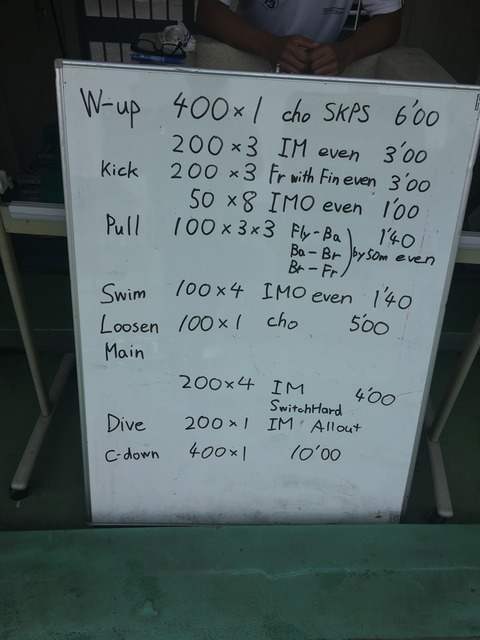 W-up 400×1 cho SKPS 6'00
200×3 IM even 3'00
Kick 200×3 Fr with Fin even 3'00
50×8 IMO even 1'00
Pull 100×3×3 Fly-Ba 1'40
Ba-Br by 50m even
Br-Fr
Swim 100×4 IMO even 1'40
Loosen 100×1 cho 5'00
Main
200×4 IM 4'00
SwitchHard
Dive 200×1 IM Allout
C-down 400×1 10'00